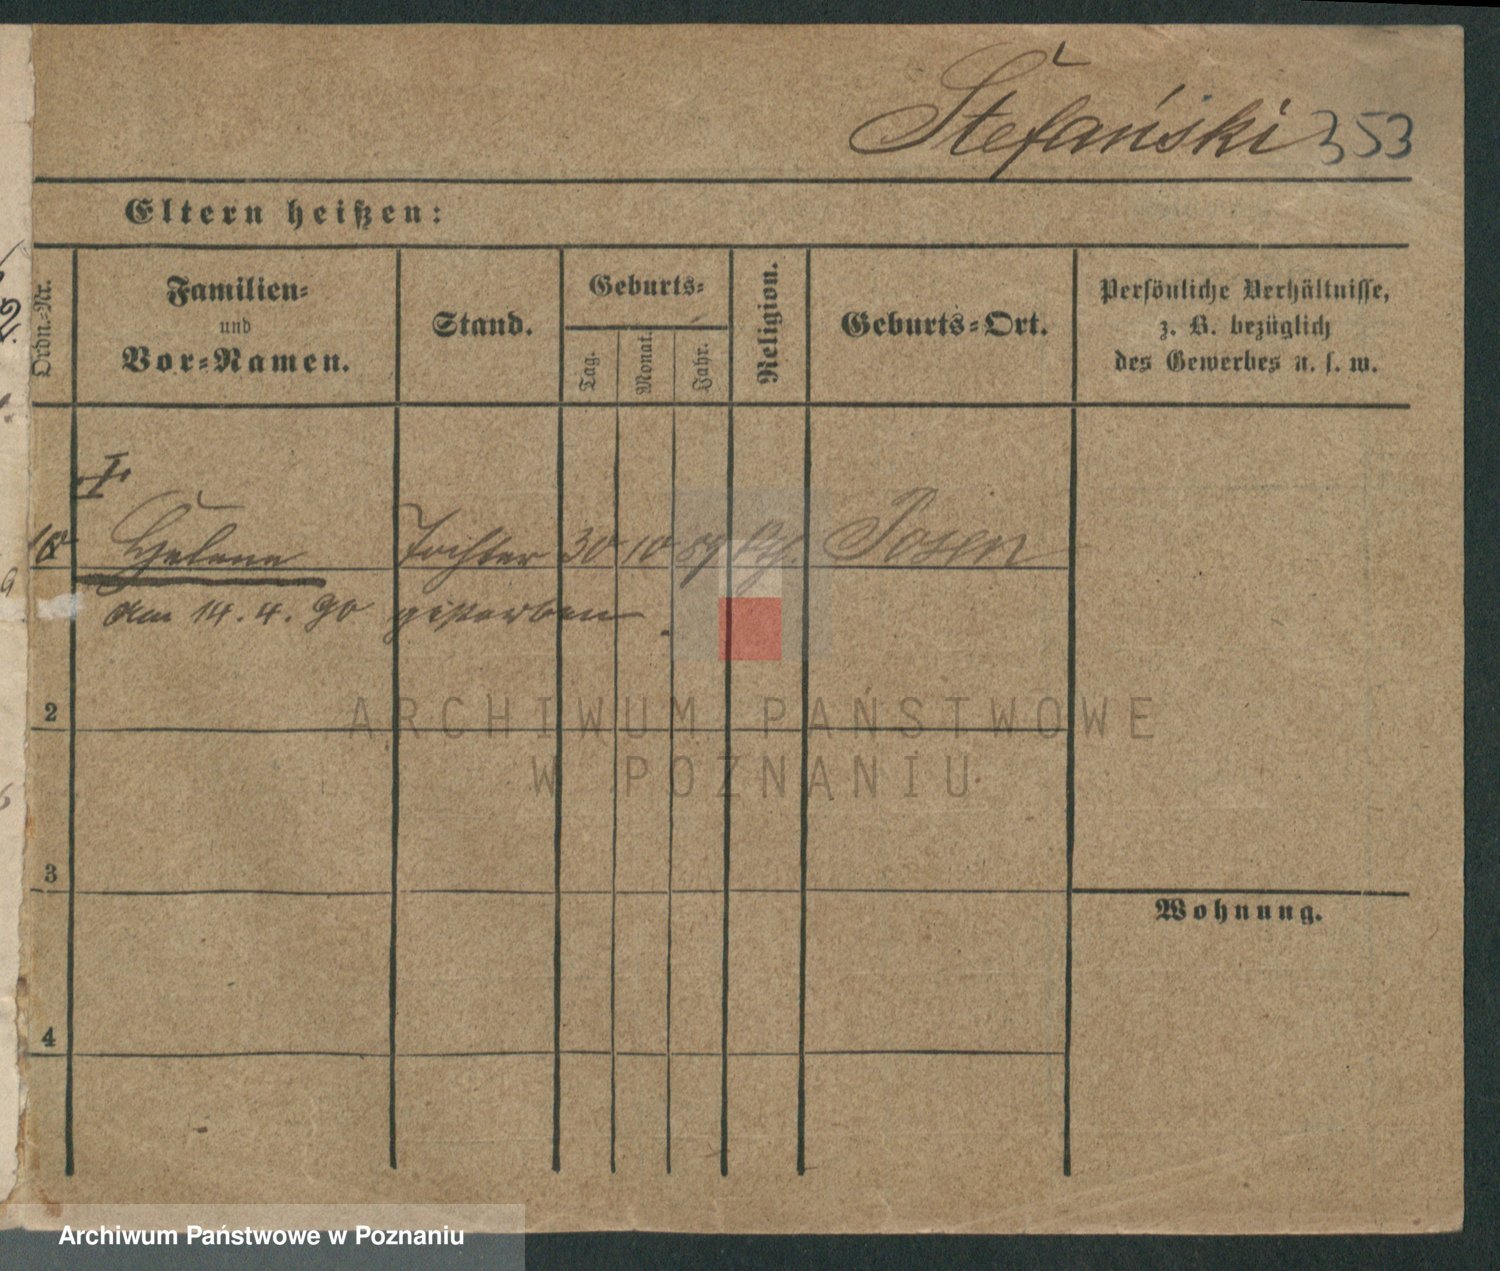 Stefański 353
Eltern heißen:
Ordn.-Nr.
Familien-
und
Vor-Namen.
Stand.
Geburts-
Tag.
Monat.
Jahr.
Religion.
Geburts-Ort.
Persönliche Verhältnisse,
z. B. bezüglich
des Gewerbes u. s. w.
I
Helene Tochter 30 10 89 kth. Posen
Am 14. 4. 90 gestorben.
2
ARCHIWUM PAŃSTWOWE
W POZNANIU
3
Wohnung.
4
Archiwum Państwowe w Poznaniu